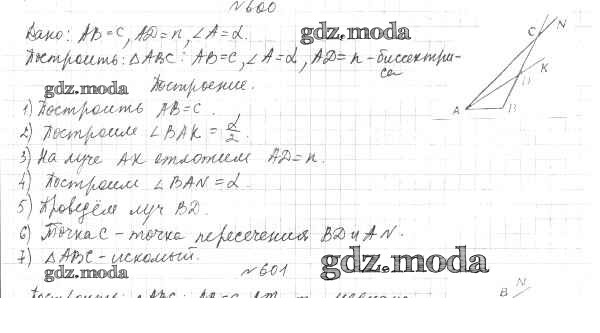 № 600
Дано: AB=c, AD=n, ∠A=α.
gdz.moda
Построить: △ABC: AB=c, ∠A=α, AD=n - биссектри-
са
gdz.moda
Построение.
C N
K
D
A B
1) Построить AB=c.
2) Построим ∠BAK = α/2.
3) На луче AK отложим AD=n.
4) Построим ∠BAN=α.
5) Проведём луч BD.
6) Точка C - точка пересечения BD и AN.
7) △ABC - искомый.
gdz.moda
№ 601
gdz.moda
Построить: △ABC: AB=c,
B N